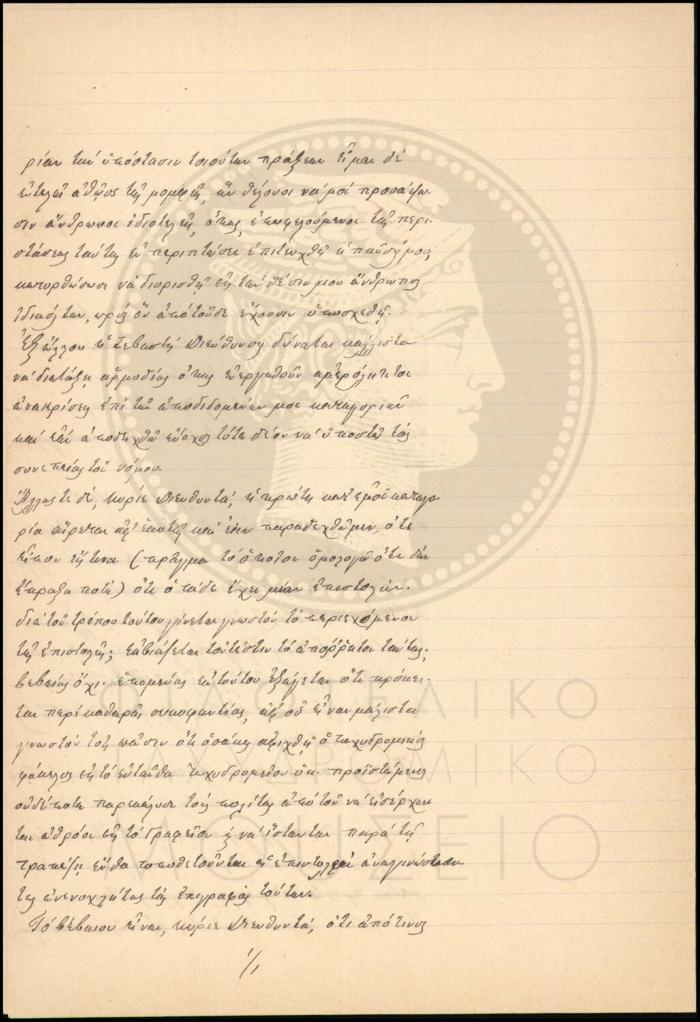 ρίαν την υπόστασιν τοιούτων πράξεων είμαι δε
εντελώς αθώος της μομφής, ην θέλουσι να μοι προσάψω-
σιν άνθρωποι ιδιοτελείς, όπως, επωφελούμενοι της περι-
στάσεως ταύτης εν περιπτώσει επιτευχθή η παύσίς μου,
κατορθώσωσι να διορισθή εις την θέσιν μου άνθρωπος
ιδικός των, προς ον από τούδε έχουσιν υποσχεθή.
Εξ άλλου η Σεβαστή Διεύθυνσις δύναται κάλλιστα
να διατάξη αρμοδίως όπως ενεργηθούν αμερόληπτοι
ανακρίσεις επί των αποδιδομένων μοι κατηγοριών
και εάν αποδειχθώ ένοχος τότε δέον να υποστώ τας
συνεπείας του νόμου.
Άλλως τε δε, κύριε Διευθυντά, η πρώτη κατ' εμού κατηγο
ρία αίρεται αφ' εαυτής και εάν παραδεχθώμεν, ότι
είπον εις τινα (πράγμα το οποίον ομολογώ ότι δεν
έπραξα ποτέ) ότι ο τάδε έχει μίαν επιστολήν.
δια του τρόπου τούτου γίνεται γνωστόν το περιεχόμενον
της επιστολής; εκβιάζεται τουτέστιν το απόρρητον ταύτης;
βεβαίως όχι. επομένως εκ τούτου εξάγεται ότι πρόκει-
ται περί καθαράς συκοφαντίας, αφ' ου είναι μάλιστα
γνωστόν τοις πάσιν ότι οσάκις αφιχθή ο ταχυδρομικός
φάκελος εις το ενταύθα Ταχυδρομείον ο κ. προϊστάμενος
ουδέποτε παρεκώλυσε τους πολίτας από του να εισέρχων
ται αθρόοι εις το γραφείον ή να ίστανται παρά τη
τραπέζη ένθα τοποθετούνται αι επιστολαί αναγινώσκον
τες ανενοχλήτως τας επιγραφάς τούτων.
Το βέβαιον είναι, κύριε Διευθυντά, ότι από τινος
·/.
ΦΙΛΟΤΕΛΙΚΟ
ΤΑΧΥΔΡΟΜΙΚΟ
ΜΟΥΣΕΙΟ